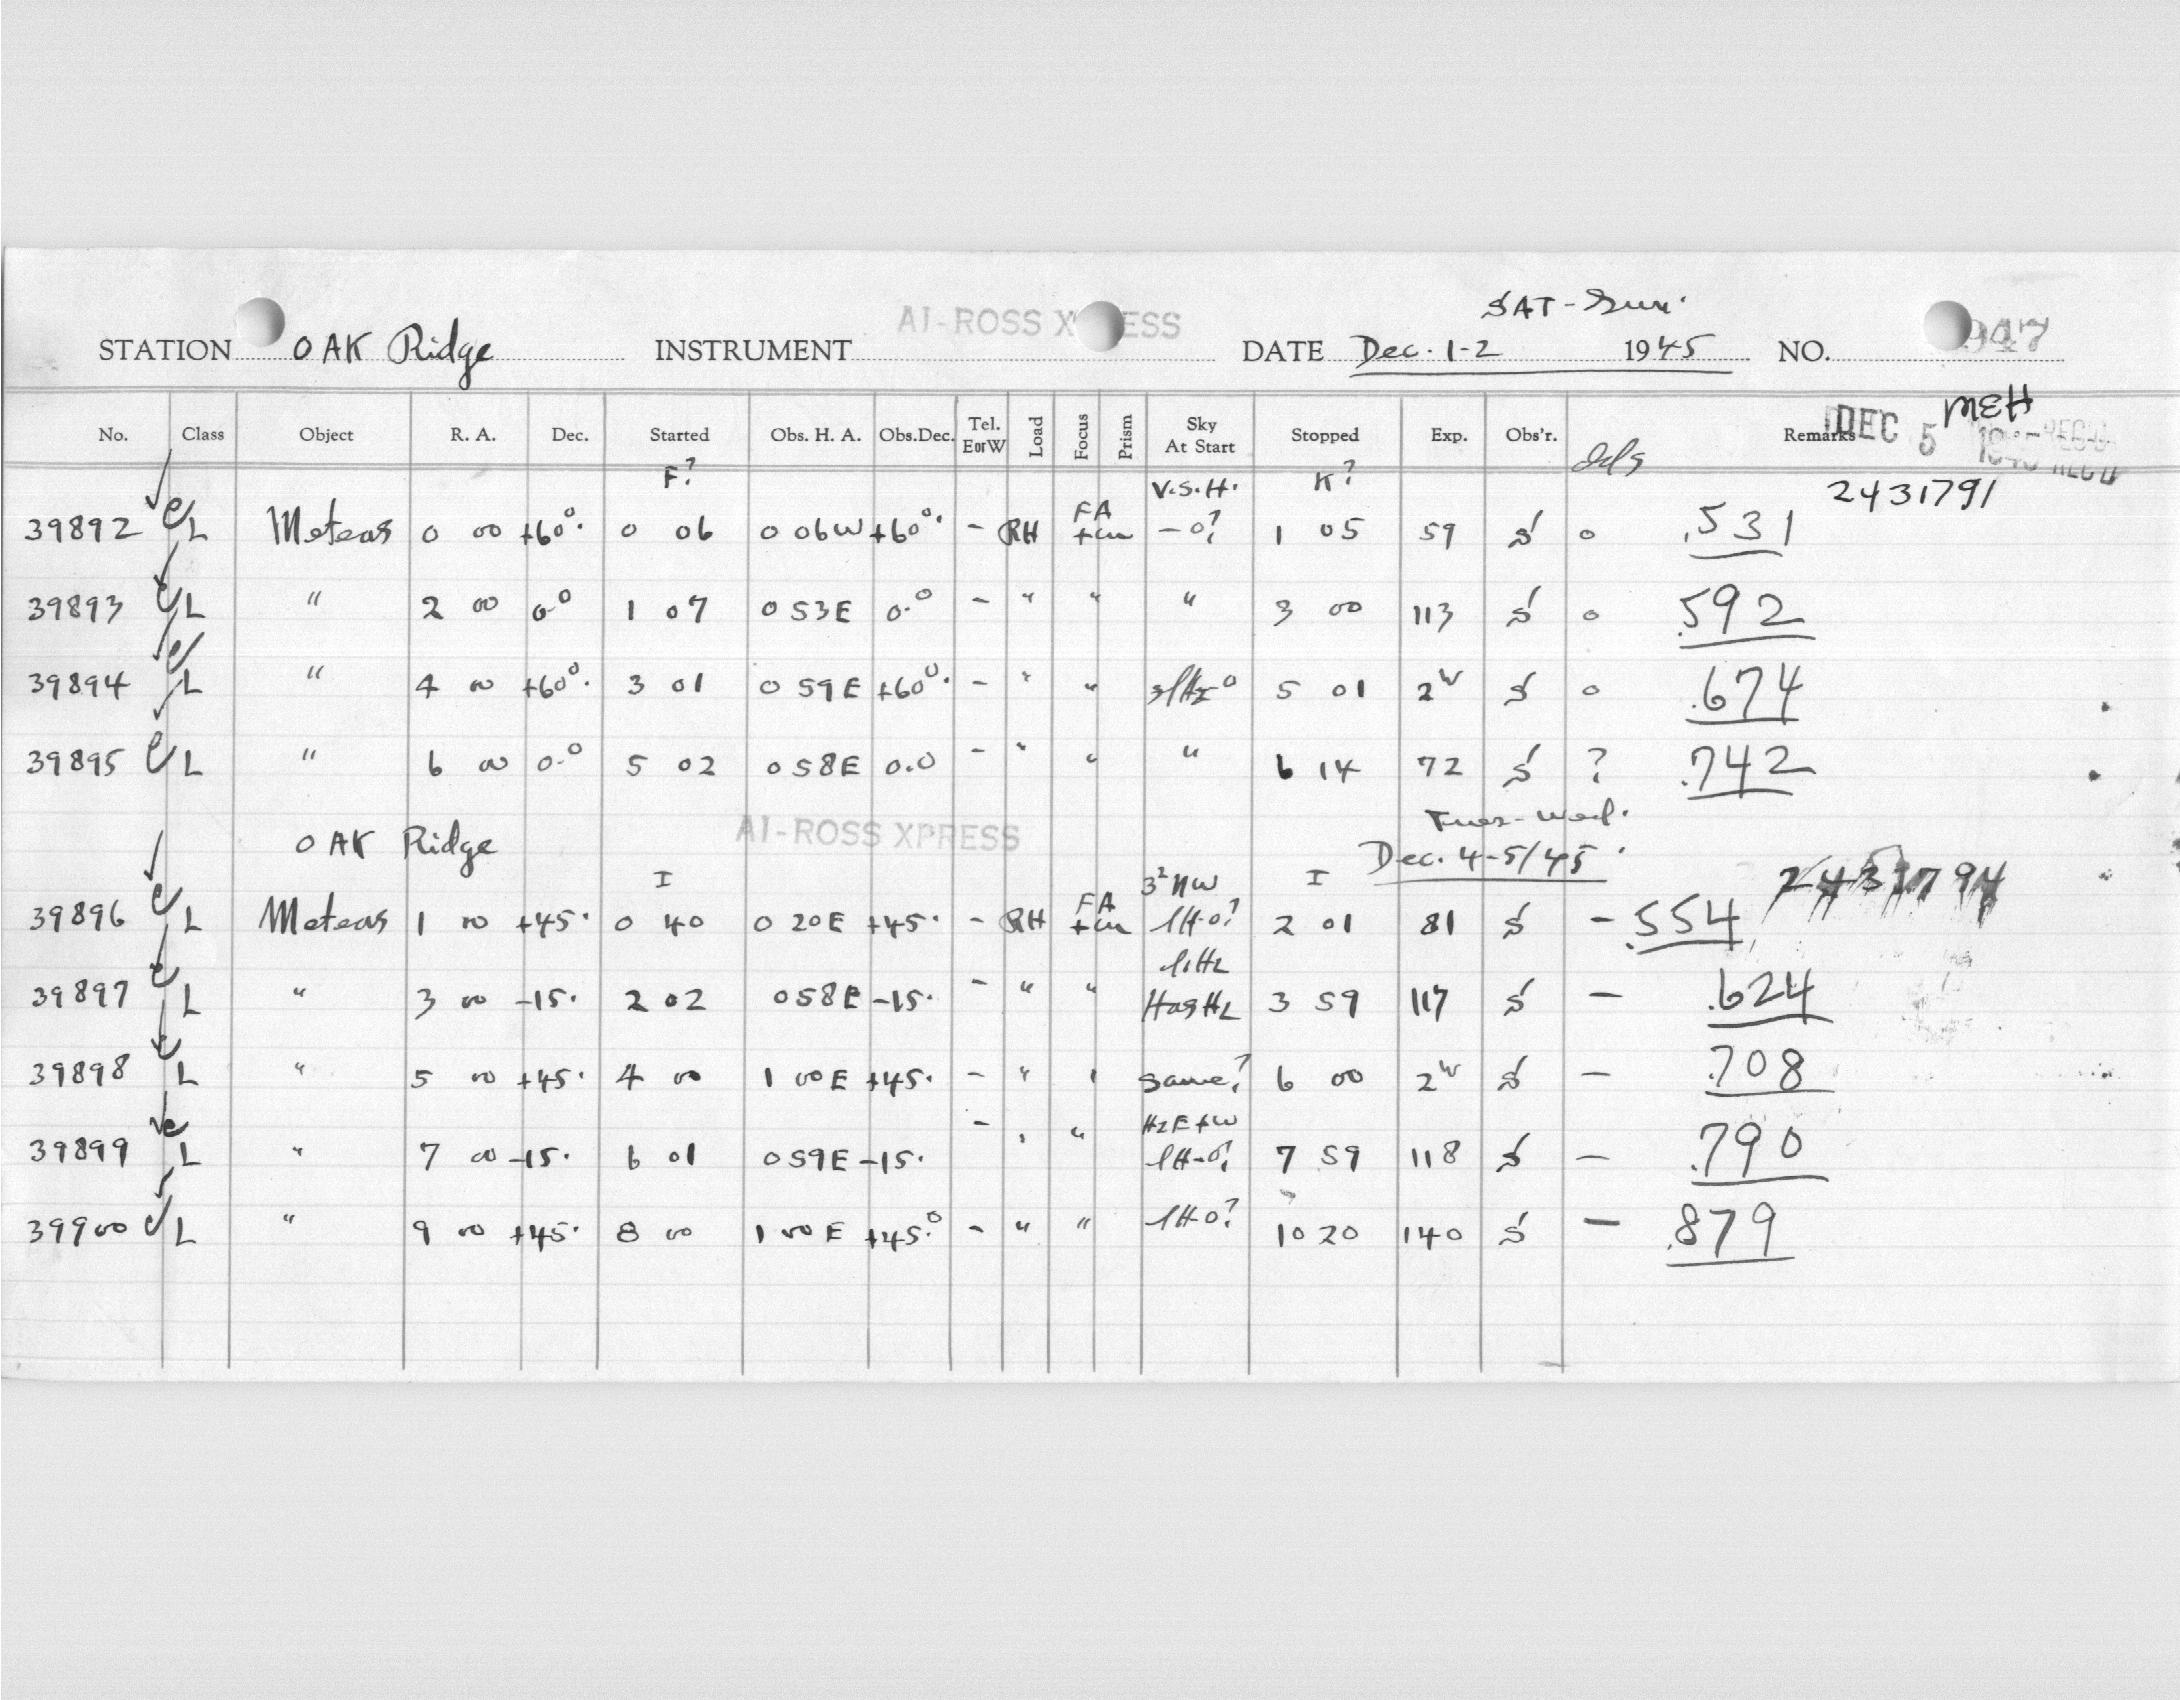 SAT-Sun.
STATION OAK Ridge INSTRUMENT AI-ROSS XPRESS DATE Dec. 1-2 1945 NO. 947
MEH
DEC 5 1945 REC'D
No. Class Object R. A. Dec. Started Obs. H. A. Obs.Dec. Tel. E or W Load Focus Prism Sky At Start Stopped Exp. Obs'r. Remarks
F? V.S.H. K? 2431791
39892 L Meteors 0 00 +60°. 0 06 0 06W +60°. - RH FA+cu -0? 1 05 59 S 0 .531
39893 L " 2 00 0.° 1 07 0 53E 0.° - " " " 3 00 113 S 0 .592
39894 L " 4 00 +60°. 3 01 0 59E +60°. - " " 5 01 2 S 0 .674
39895 L " 6 00 0.° 5 02 0 58E 0.0 - " " " 6 14 72 S ? .742
Tues-Wed.
OAK Ridge AI-ROSS XPRESS Dec. 4-5/45
I I 2431794
39896 L Meteors 1 00 +45. 0 40 0 20E +45. - RH FA+cu 2 01 81 S - .554
39897 L " 3 00 -15. 2 02 0 58E -15. - " " 3 59 117 S - .624
39898 L " 5 00 +45. 4 00 1 00E +45. - " " same? 6 00 2 S - .708
39899 L " 7 00 -15. 6 01 0 59E -15. - " " 7 59 118 S - .790
39900 L " 9 00 +45. 8 00 1 00E +45.° - " " 10 20 140 S - .879